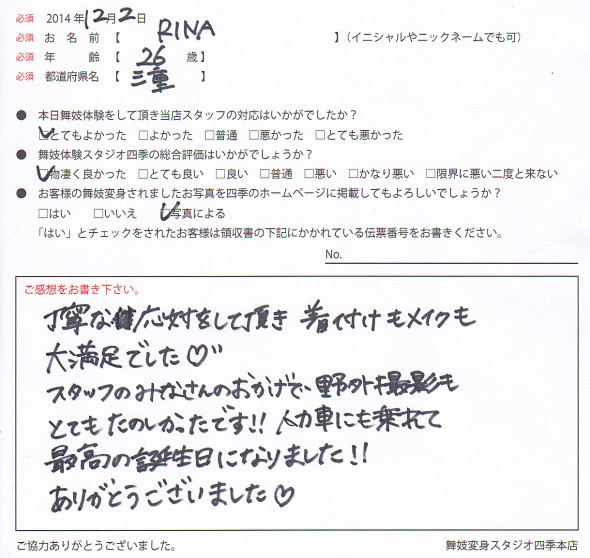 必須 2014年12月2日
必須 お名前【 RINA 】(イニシャルやニックネームでも可)
必須 年齢【 26 歳】
必須 都道府県名【 三重 】
● 本日舞妓体験をして頂き当店スタッフの対応はいかがでしたか?
☑とてもよかった □よかった □普通 □悪かった □とても悪かった
● 舞妓体験スタジオ四季の総合評価はいかがでしょうか?
☑物凄く良かった □とても良い □良い □普通 □悪い □かなり悪い □限界に悪い二度と来ない
● お客様の舞妓変身されましたお写真を四季のホームページに掲載してもよろしいでしょうか?
□はい □いいえ ☑写真による
「はい」とチェックをされたお客様は領収書の下記にかかれている伝票番号をお書きください。
No.
ご感想をお書き下さい。
丁寧な応対をして頂き 着付けもメイクも
大満足でした♡"
スタッフのみなさんのおかげで、野外撮影も
とてもたのしかったです!! 人力車にも乗れて
最高の誕生日になりました!!
ありがとうございました♡
ご協力ありがとうございました。 舞妓変身スタジオ四季本店